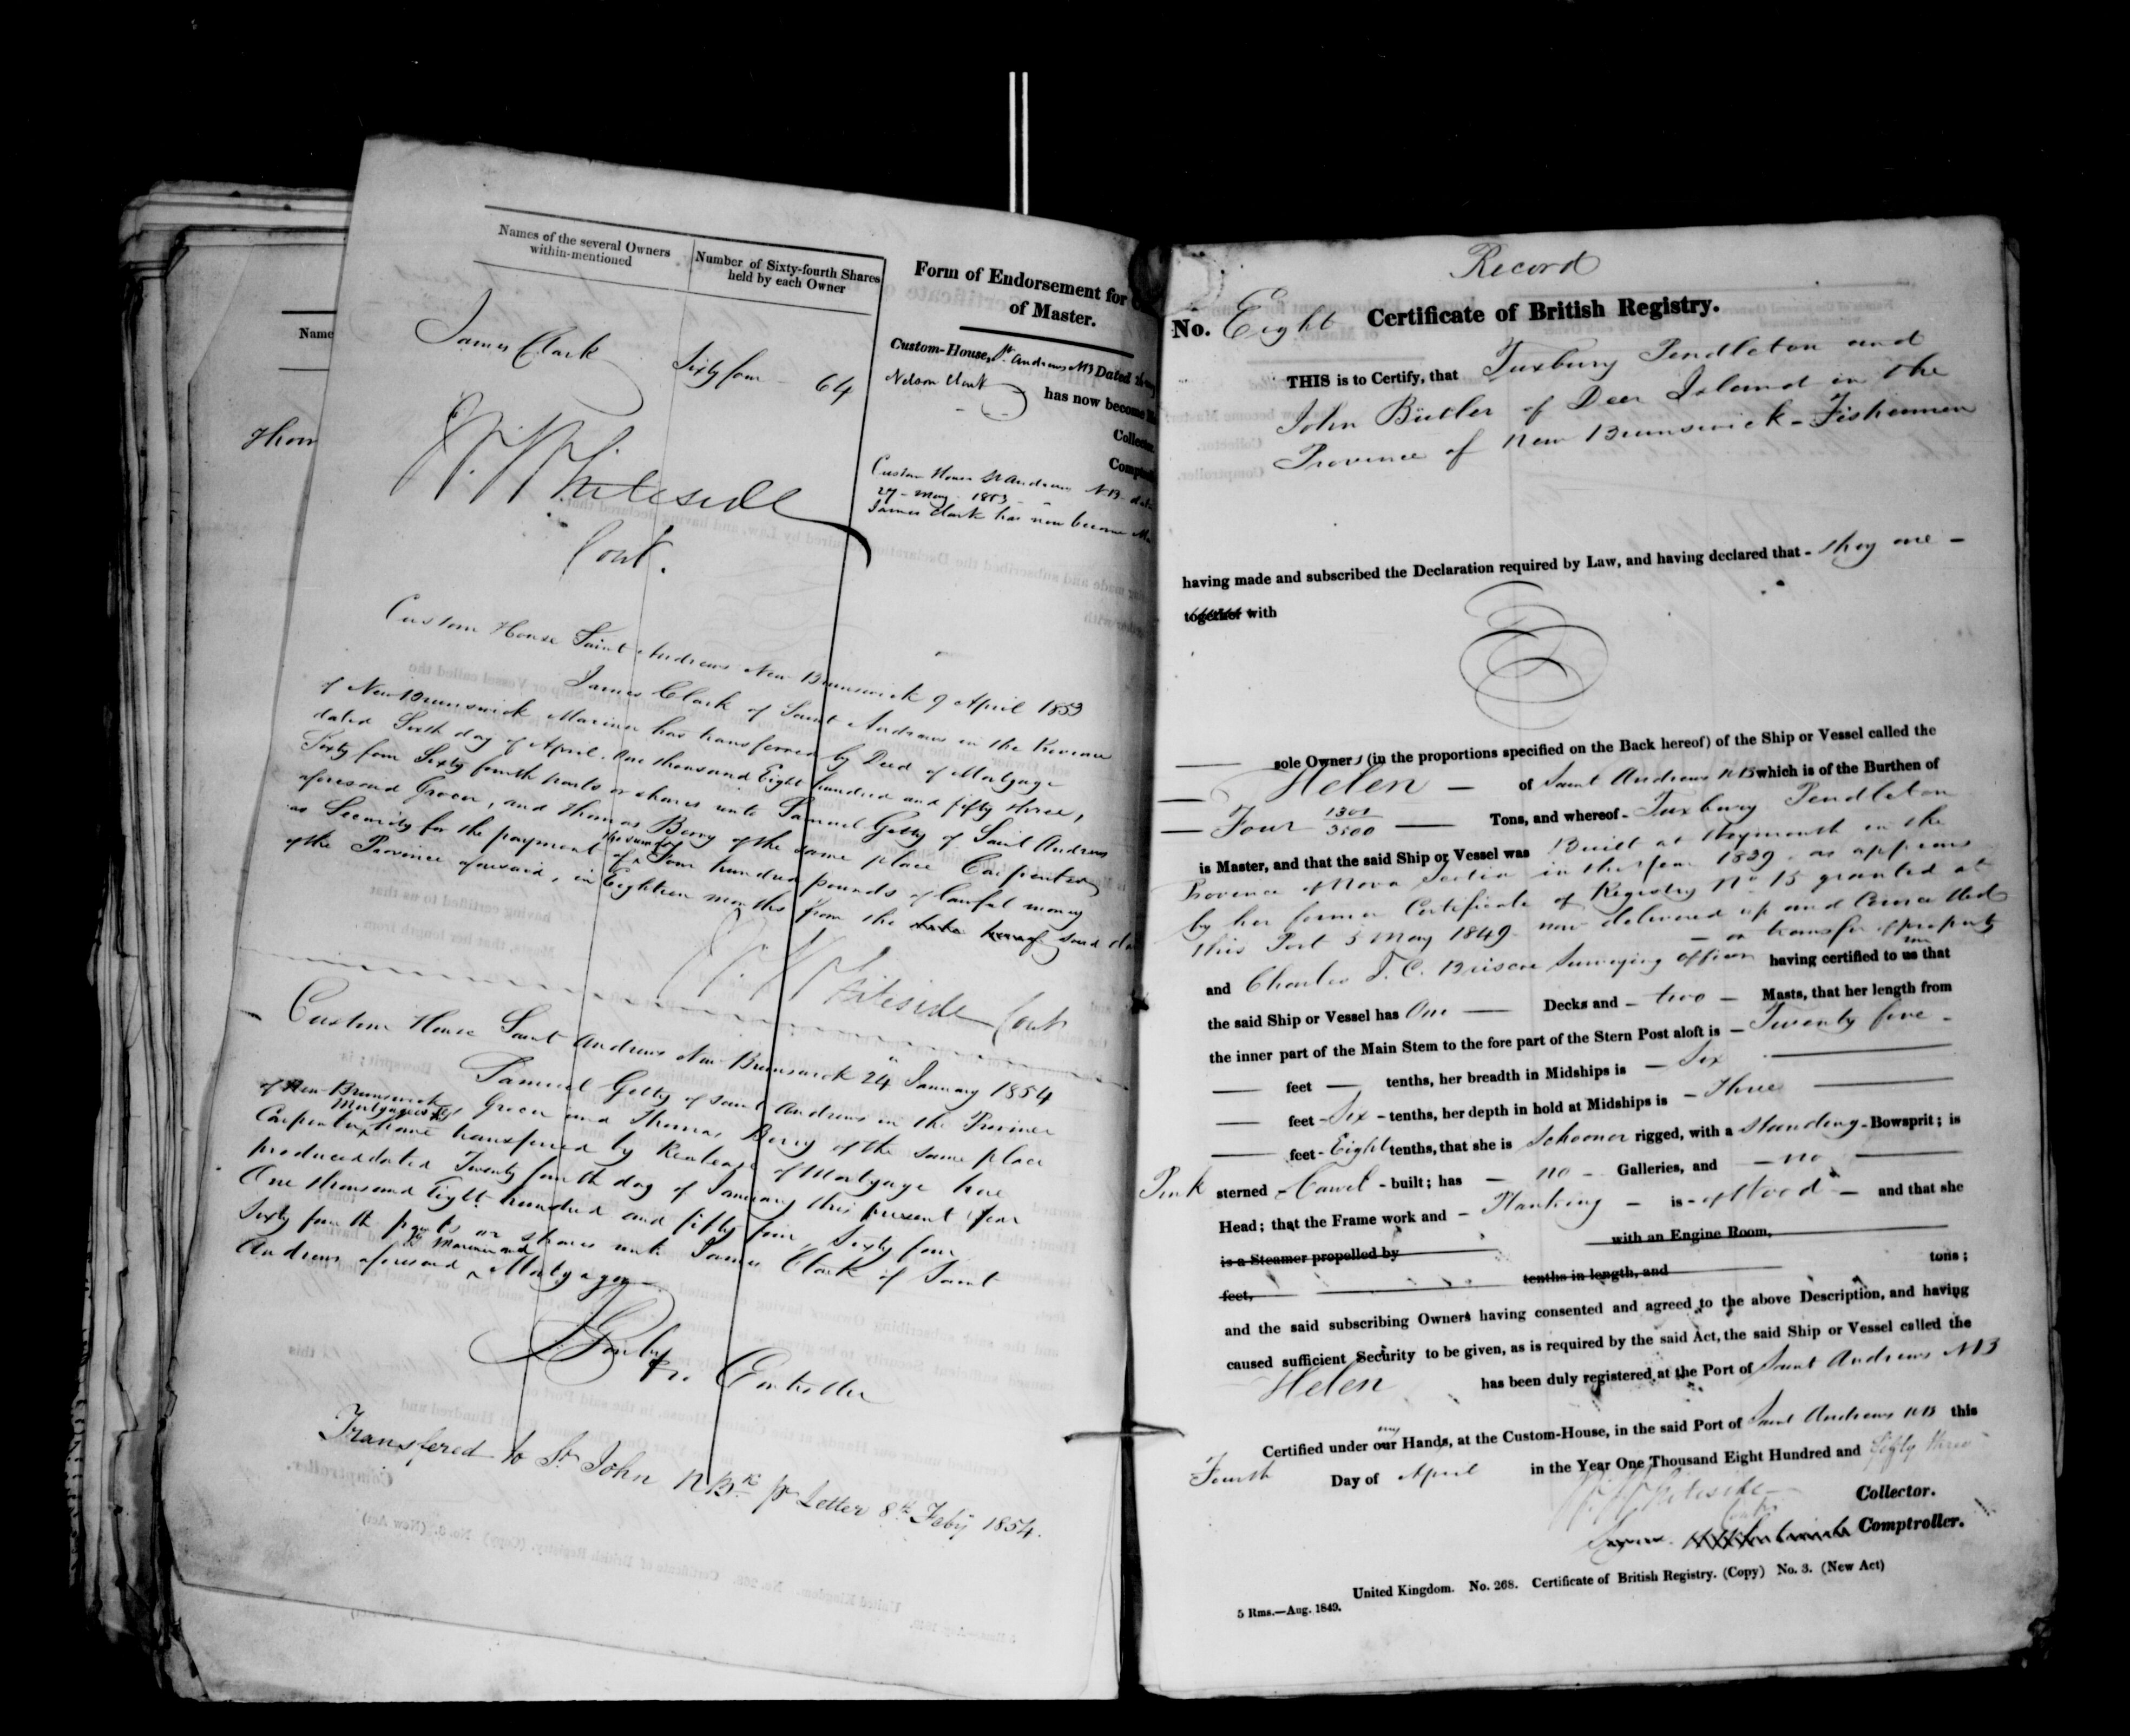 Name
Thom
Names of the several Owners
within-mentioned
Number of Sixty-fourth Shares
held by each Owner
James Clark
Sixty four - 64
W. Whiteside
Cont.
Form of Endorsement for
of Master.
Custom-House, St. Andrews NB Dated
Nelson Clark
has now become
Collector
Custom House St Andrews NB
27 - May 1853
James Clark has now become
Custom House Saint Andrews New Brunswick 9 April 1853
James Clark of Saint Andrews in the Province
of New Brunswick Mariner has transferred by Deed of Mortgage
dated Sixth day of April One thousand Eight hundred and fifty three,
Sixty four Sixty fourth parts or shares unto Samuel Getty of Saint Andrews
aforesaid Grocer, and Thomas Berry of the same place Carpenter
as Security for the payment of the sum of Four hundred pounds of lawful money
of the Province aforesaid, in Eighteen months from the date hereof said
W. Whiteside Cont
Custom House Saint Andrews New Brunswick 24 January 1854
Samuel Getty of Saint Andrews in the Province
of New Brunswick Grocer and Thomas Berry of the same place
Carpenter Mortgagees have transferred by Release of Mortgage here
produced dated Twenty fourth day of January this present year
One thousand Eight hundred and fifty four, Sixty four
Sixty fourth parts or shares unto James Clark of Saint
Andrews aforesaid Mariner and Mortgagor
Controller
Transfered to St John N Bk pr Letter 8th Feby 1854.
Record
No. Eight Certificate of British Registry.
THIS is to Certify, that Tuxbury Pendleton and
John Butler of Deer Island in the
Province of New Brunswick - Fishermen
having made and subscribed the Declaration required by Law, and having declared that - they are -
together with
sole Owners (in the proportions specified on the Back hereof) of the Ship or Vessel called the
Helen - of Saint Andrews NB which is of the Burthen of
Four 1301/3500 Tons, and whereof - Tuxbury Pendleton
is Master, and that the said Ship or Vessel was Built at Weymouth in the
Province of Nova Scotia in the Year 1839 - as appears
by her former Certificate of Registry No 15 granted at
this Port 5 May 1849 now delivered up and Cancelled
- on transfer of property
and Charles J. C. Briscoe Surveying Officer having certified to us me that
the said Ship or Vessel has One Decks and - two - Masts, that her length from
the inner part of the Main Stem to the fore part of the Stern Post aloft is - Twenty five -
feet - tenths, her breadth in Midships is - Six
feet - Six - tenths, her depth in hold at Midships is - Three
feet - Eight tenths, that she is Schooner rigged, with a standing - Bowsprit; is
Pink sterned - Carvel - built; has - no - Galleries, and - no
Head; that the Frame work and - Planking - is - of Wood - and that she
is a Steamer propelled by with an Engine Room,
feet, tenths in length, and tons;
and the said subscribing Owners having consented and agreed to the above Description, and having
caused sufficient Security to be given, as is required by the said Act, the said Ship or Vessel called the
Helen has been duly registered at the Port of Saint Andrews NB
Certified under our my Hands, at the Custom-House, in the said Port of Saint Andrews NB this
Fourth Day of April in the Year One Thousand Eight Hundred and fifty three
W. Whiteside Collector.
Contr
Comptroller.
United Kingdom. No. 268. Certificate of British Registry. (Copy) No. 3. (New Act)
5 Rms.—Aug. 1849.